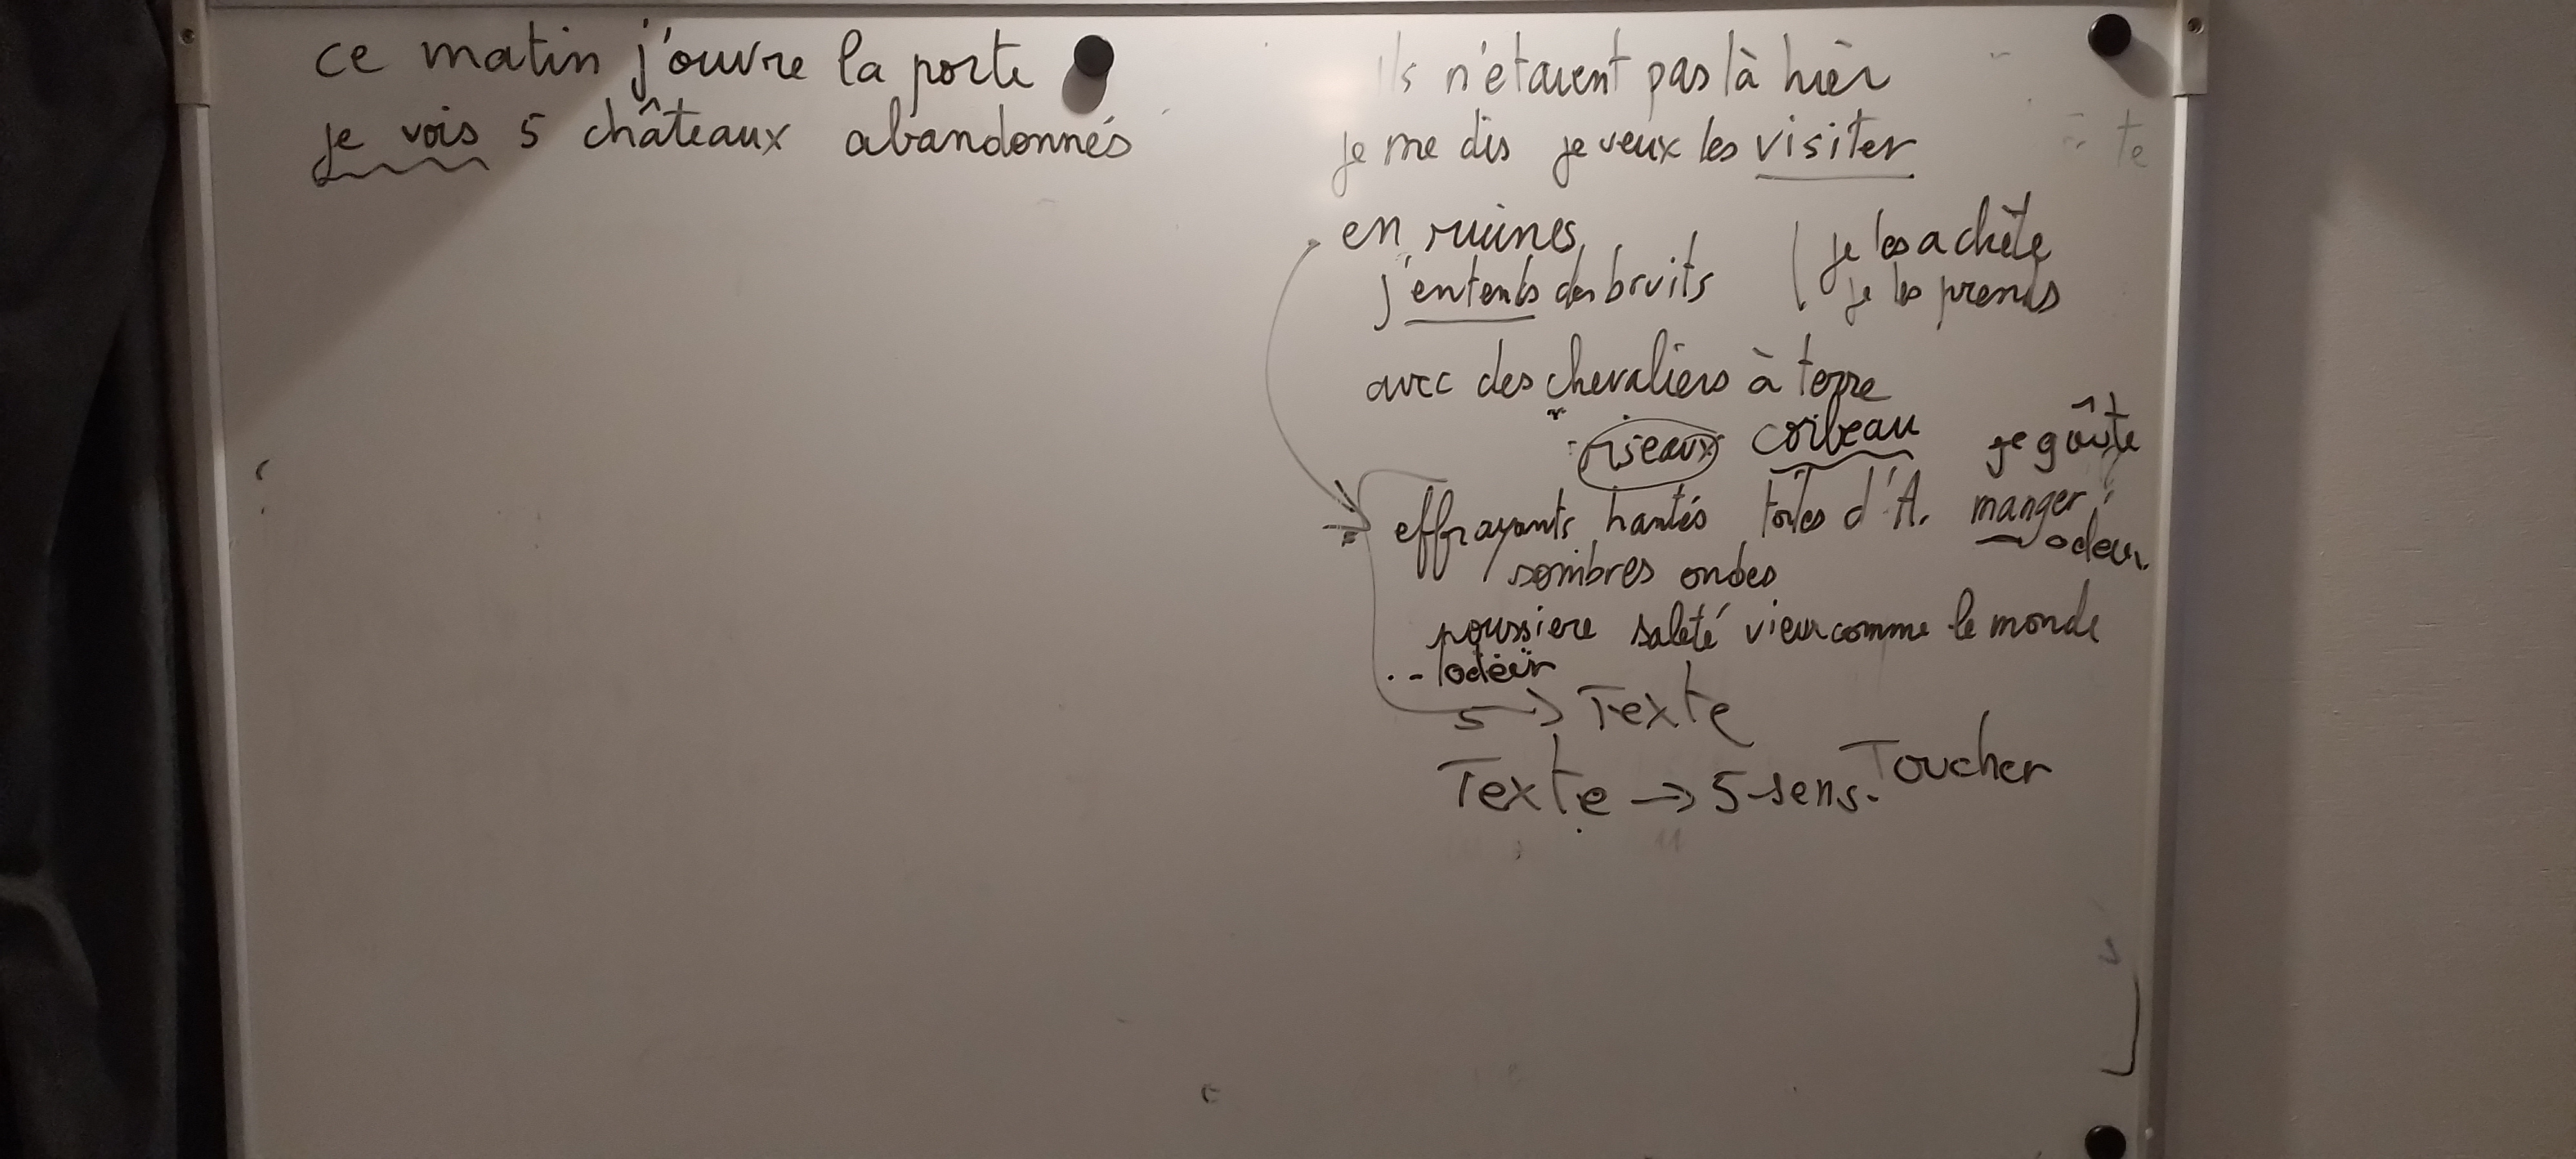 ce matin j'ouvre la porte
je vois 5 châteaux abandonnés
ils n'étaient pas là hièr
je me dis je veux les visiter
te
en ruines
j'entends des bruits
je les achète
je les prends
avec des chevaliers à terre
oiseaux corbeau
je goûte
effrayants hantés toiles d'A. manger
odeur
sombres ondes
poussiere saleté vieux comme le monde
odeur
5 → Texte
Texte → 5 sens. Toucher